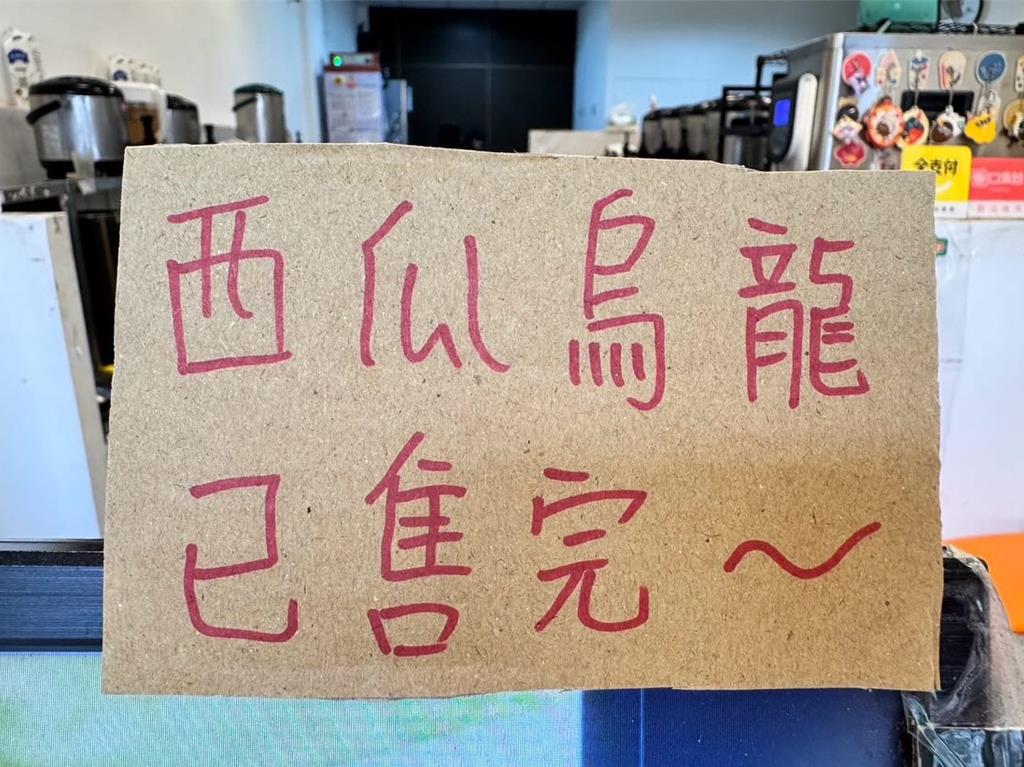 西瓜烏龍
已售完～
全支付